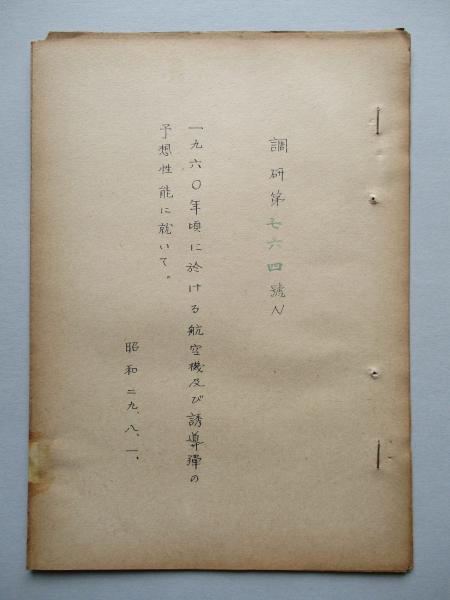 調研第七六四號N
一九六〇年頃に於ける航空機及び誘導弾の
予想性能に就いて。
昭和二九、八、一、